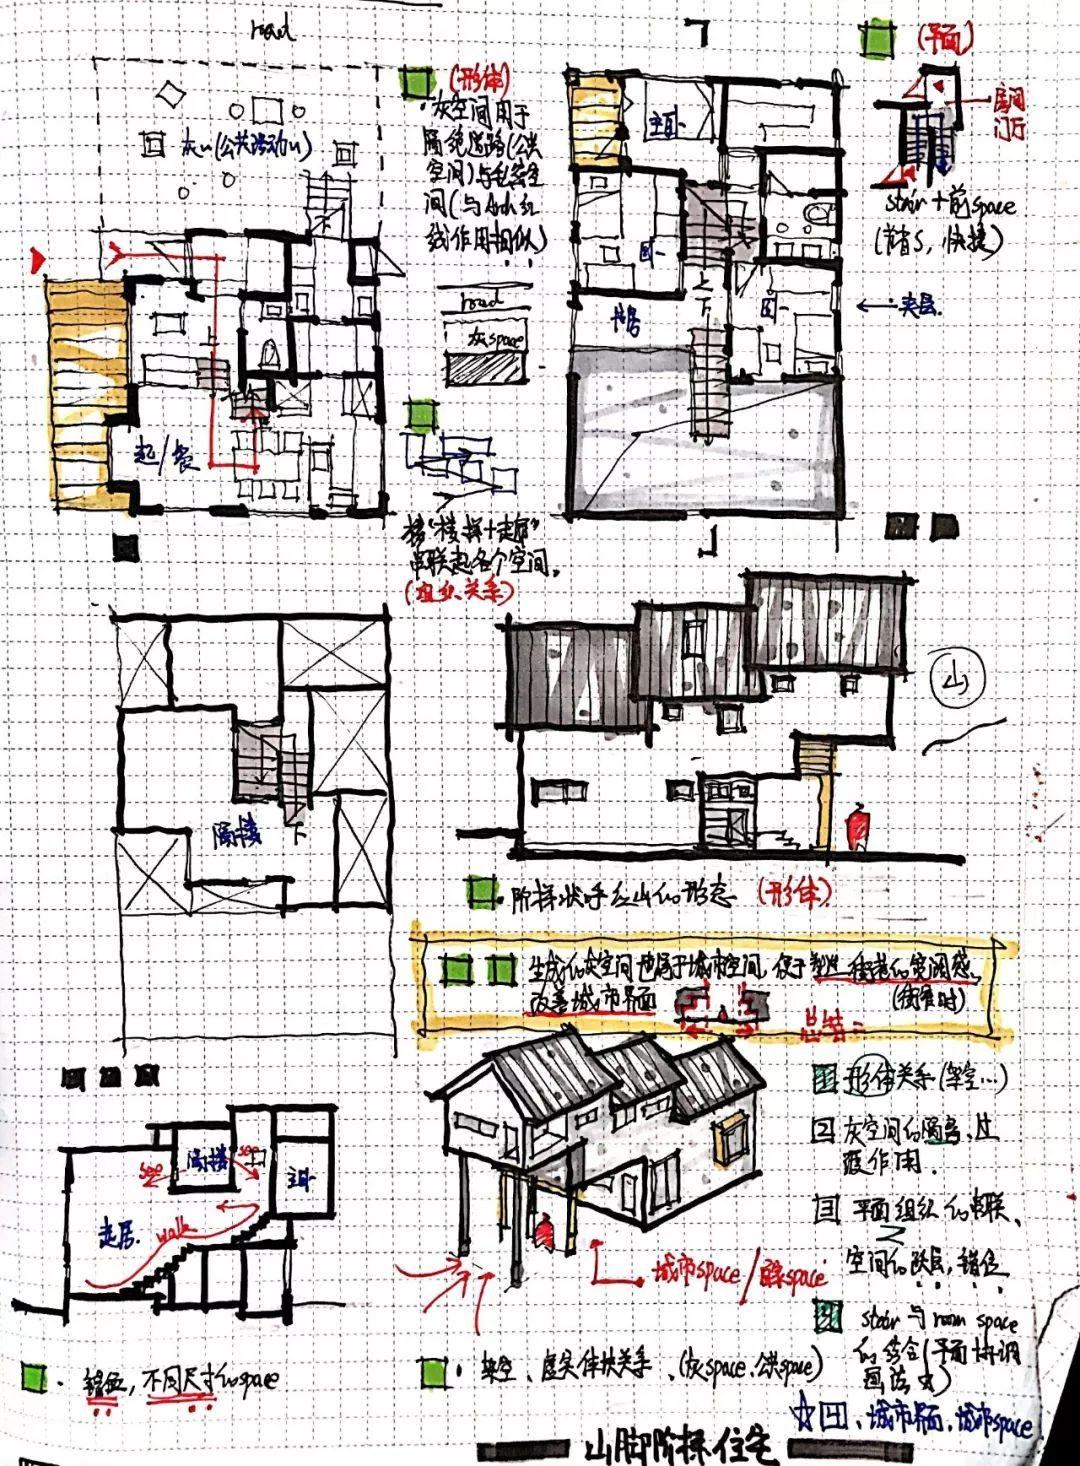 road
灰u(公共活动u)
起/餐
(形体)
·灰空间用于
隔绝道路(公共
空间)与私密空
间(与Arch红
线作用相似)
road
灰space
楼梯+走廊"
串联起各个空间。
关系)
主卧
卧
卧
上
下
起居
(平面)
房间
门厅
stair+前space
(节省S,快捷)
←夹层.
阁楼
下
山
·阶梯状呼应山的形态 (形体)
生成的灰空间也属于城市空间,便于塑造街巷的宽阔感,
改善城市界面 (街窄时)
总结:
1 形体关系(架空…)
2 灰空间的隔离、过
渡作用.
3 平面组织的串联、
空间的跃层,错位
4 stair与room space
的契合(平面协调
画法也)
☆回、城市界面,城市space
see
阁楼
see
主卧
起居
walk
·错位,不同尺寸的space
城市space/
·架空、虚实体块关系、(灰space、公共space)
山脚阶梯住宅